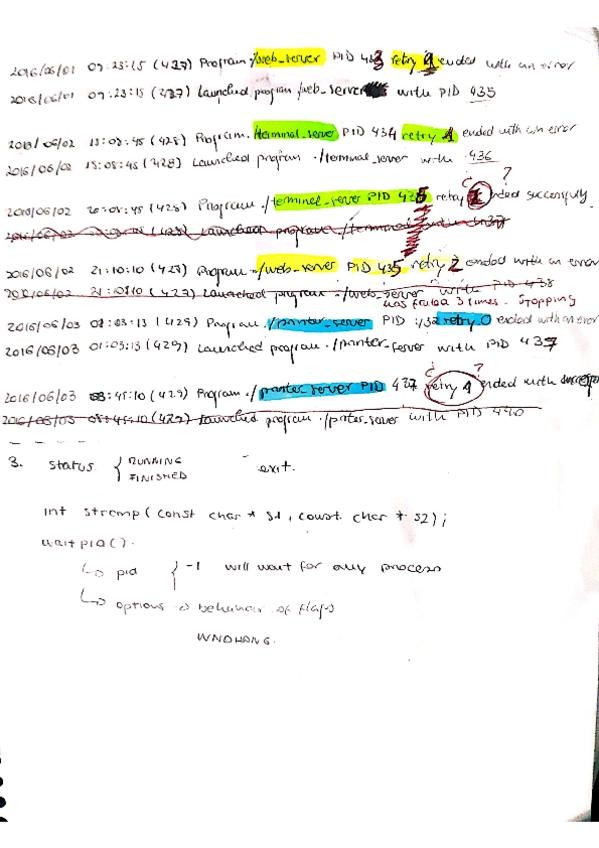 2016/06/01 09:23:15 (427) Program ./web_server PID 433 retry 1 ended with an error
2016/06/01 09:23:15 (427) Launched program ./web_server with PID 435
2016/06/02 18:08:45 (428) Program ./terminal_server PID 434 retry 1 ended with an error
2016/06/02 18:08:45 (428) Launched program ./terminal_server with 436
¿ ?
2016/06/02 20:08:45 (428) Program ./terminal_server PID retry ended successfully
2016/06/02 (428) Launched program ./terminal with 437
2016/06/02 21:10:10 (427) Program ./web_server PID 435 retry 2 ended with an error
2016/06/02 21:10:10 (427) Launched program ./web_server with PID 438
has failed 3 times. Stopping
2016/06/03 01:03:13 (429) Program ./printer_server PID 432 retry 0 ended with an error
2016/06/03 01:03:13 (429) Launched program ./printer_server with PID 437
¿ ?
2016/06/03 08:45:10 (429) Program ./printer_server PID 437 retry 1 ended with
2016/06/03 08:45:10 (429) Launched program ./printer_server with PID 440
3. status { RUNNING exit.
FINISHED
int strcmp( const char * s1, const char * s2);
waitpid().
↳ pid { -1 will wait for any process
↳ options → behaviour of flags
WNOHANG.